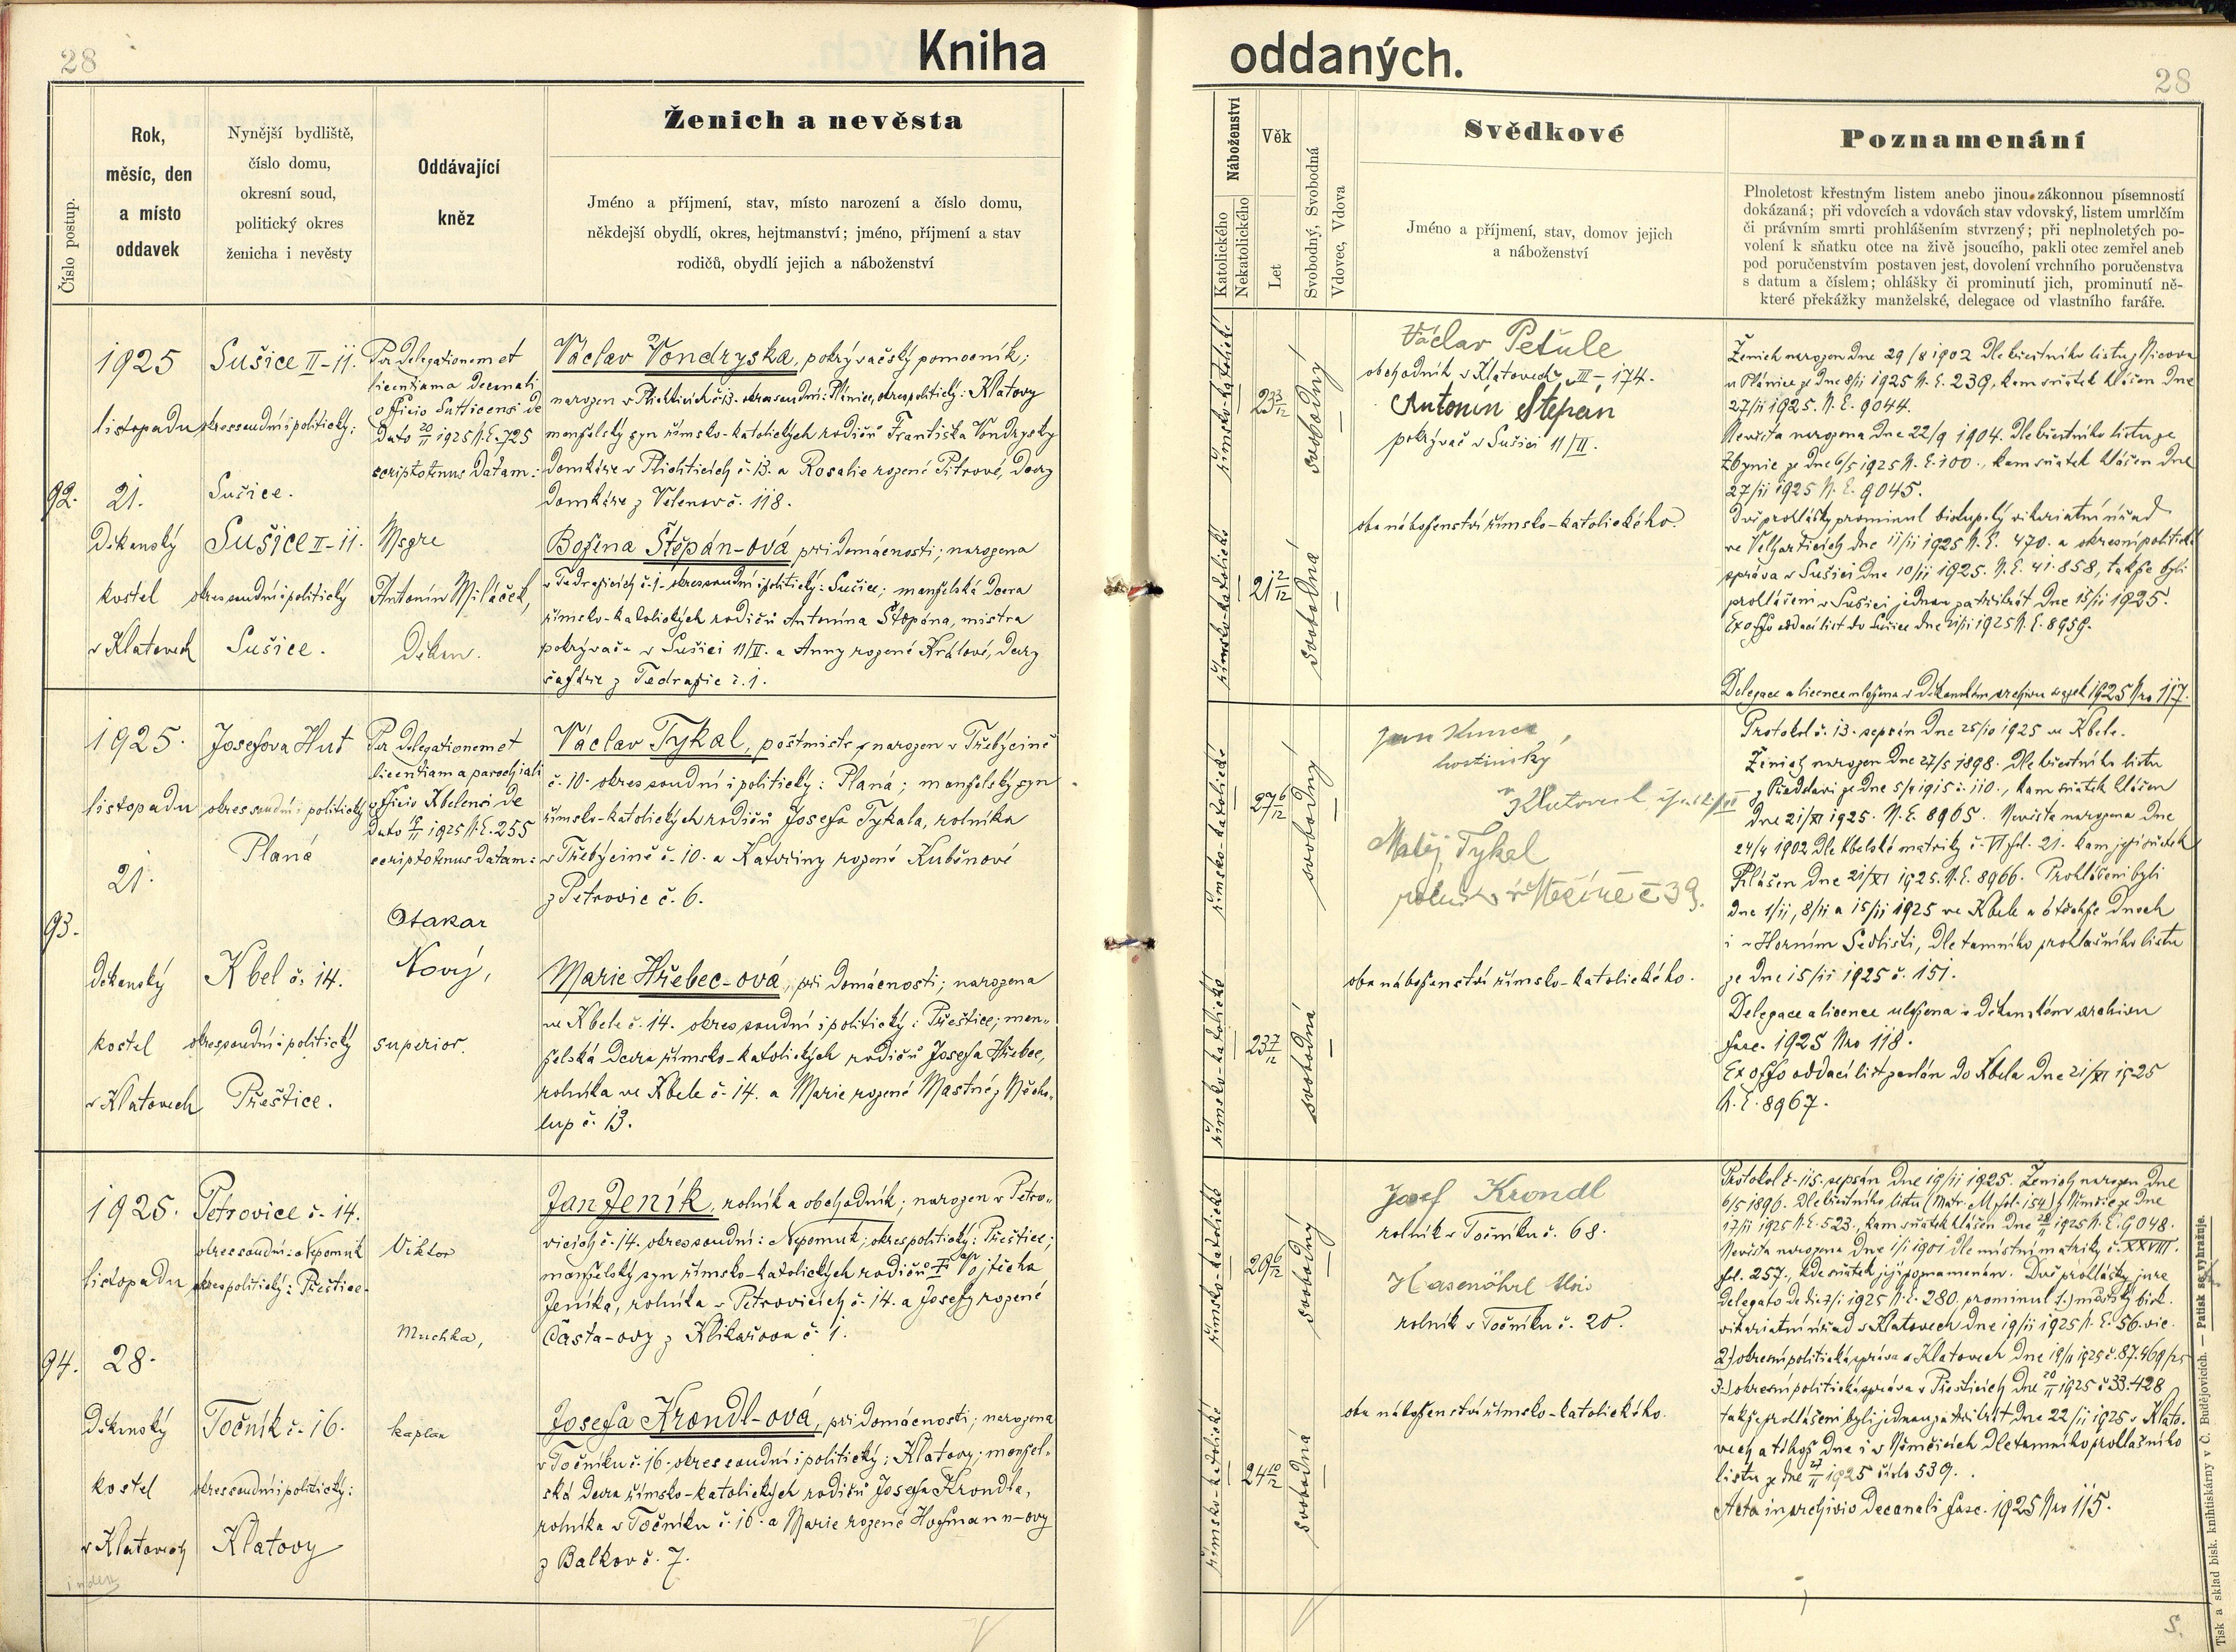 28
Kniha
Číslo postup.
Rok,
měsíc, den
a místo
oddavek
Nynější bydliště,
číslo domu,
okresní soud,
politický okres
ženicha i nevěsty
Oddávající
kněz
Ženich a nevěsta
Jméno a příjmení, stav, místo narození a číslo domu,
někdejší obydlí, okres, hejtmanství; jméno, příjmení a stav
rodičů, obydlí jejich a náboženství
92.
1925
listopadu
21.
Děkanský
kostel
v Klatovech
Sušice II-11.
okres soudní i politický:
Sušice.
Sušice II-11.
okres soudní i politický
Sušice.
Per delegationem et
licentiam a decanali
officio Sutticensi de
dato 20/11 1925 N.E. 725
scriptotenus datam:
Msgre
Antonín Miláček,
Děkan.
Václav Vondryska, pokrývačský pomocník;
narozen v Plichticích č. 13. okres soudní: Plánice, okres politický: Klatovy
manželský syn římsko-katolických rodičů Františka Vondrysky
domkáře v Plichticích č. 13. a Rosalie rozené Pitrové, dcery
domkáře z Velenov č. 118.
Božena Štěpán-ová při domácnosti; narozena
v Tedražicích č. 1. okres soudní i politický: Sušice; manželská dcera
římsko-katolických rodičů Antonína Štěpána, mistra
pokrývače v Sušici 11/II. a Anny rozené Králové, dcery
šafáře z Tedražic č. 1.
93.
1925.
listopadu
21.
děkanský
kostel
v Klatovech
Josefova Huť
okres soudní i politický
Planá
Kbel č. 14.
okres soudní i politický
Přeštice.
Per delegationem et
licentiam a parochiali
officio Kbelensi de
dato 1925 N.E. 255
scriptotenus datam:
Otakar
Nový,
superior.
Václav Tykal, poštmistr, narozen v Třebýcině
č. 10. okres soudní i politický: Planá; manželský syn
římsko-katolických rodičů Josefa Tykala, rolníka
v Třebýcině č. 10. a Kateřiny rozené Kuběnové
z Petrovic č. 6.
Marie Hřebec-ová, při domácnosti; narozena
ve Kbele č. 14. okres soudní i politický: Přeštice; man-
želská dcera římsko-katolických rodičů Josefa Hřebec,
rolníka ve Kbele č. 14. a Marie rozené Mastné z Měcho-
lup č. 13.
94.
1925.
listopadu
28.
Děkanský
kostel
v Klatovech
index
Petrovice č. 14.
okres soudní: Nepomuk
okres politický: Přeštice.
Točník č. 16.
okres soudní i politický:
Klatovy
Viktor
Muchka,
kaplan
Jan Jeník, rolník a obchodník; narozen v Petro-
vicích č. 14. okres soudní: Nepomuk; okres politický: Přeštice;
manželský syn římsko-katolických rodičů Vojtěcha
Jeníka, rolníka v Petrovicích č. 14. a Josefy rozené
Části-ovy z Klikařova č. 1.
Josefa Krondl-ová, při domácnosti; narozena
v Točníku č. 16. okres soudní i politický: Klatovy; manžel-
ská dcera římsko-katolických rodičů Josefa Krondla,
rolníka v Točníku č. 16. a Marie rozené Hofmann-ovy
z Balkov č. 7.
oddaných.
28
Náboženství
Katolického
Nekatolického
Věk
Let
Svobodný, Svobodná
Vdovec, Vdova
Svědkové
Jméno a příjmení, stav, domov jejich
a náboženství
Poznamenání
Plnoletost křestným listem anebo jinou zákonnou písemností
dokázaná; při vdovcích a vdovách stav vdovský, listem umrlčím
či právním smrti prohlášením stvrzený; při neplnoletých po-
volení k sňatku otce na živě jsoucího, pakli otec zemřel aneb
pod poručenstvím postaven jest, dovolení vrchního poručenstva
s datum a číslem; ohlášky či prominutí jich, prominutí ně-
které překážky manželské, delegace od vlastního faráře.
římsko-katolické
23 3/12
svobodný
římsko-katolické
21 2/12
svobodná
Václav Petule
obchodník v Klatovech III-174.
Antonín Štěpán
pokrývač v Sušici 11/II.
oba náboženství římsko-katolického.
Ženich narozen dne 29/8 1902 dle křestního listu z Nicova
u Plánice ze dne 8/11 1925 N.E. 239, kam sňatek hlášen dne
27/11 1925. N.E. 9044.
Nevěsta narozena dne 22/9 1904. dle křestního listu ze
Zbynic ze dne 6/5 1925 N.E. 100., kam sňatek hlášen dne
27/11 1925 N.E. 9045.
Dvě prohlášky prominul biskupský vikariátní úřad
ve Velharticích dne 11/11 1925 N.E. 470. a okresní politická
správa v Sušici dne 10/11 1925. N.E. 41.858, takže byli
prohlášeni v Sušici jednou za třikrát dne 15/11 1925.
Ex offo oddací list do Sušice dne 21/11 1925 N.E. 8959.
Delegace a licence uložena v Děkanském archivu 1925 Nro 117.
římsko-katolické
27 6/12
svobodný
římsko-katolické
23 7/12
svobodná
Jan Kunc,
hostinský
v Klatovech
Matěj Tykal
rolník v Mečíně č 39.
oba náboženství římsko-katolického.
Protokol č. 13. sepsán dne 25/10 1925 ve Kbele.
Ženich narozen dne 27/5 1898. dle křestního listu
z Předslavi ze dne 5/7 1915 č. 110., kam sňatek hlášen
dne 21/XI 1925. N.E. 8965. Nevěsta narozena dne
24/4 1902 dle Kbelské matriky č. VI fol. 21. kam její sňatek
hlášen dne 21/XI 1925. N.E. 8966. Prohlášeni byli
dne 1/11, 8/11 a 15/11 1925 ve Kbele a v těchže dnech
i v Horním Sedlišti, dle tamního prohlašního listu
ze dne 15/11 1925 č. 151.
Delegace a licence uložena v děkanském archivu
fasc. 1925 Nro 118.
Ex offo oddací list zaslán do Kbela dne 21/XI 1925
N.E. 8967.
římsko-katolické
29 6/12
svobodný
římsko-katolické
24 10/12
svobodná
Josef Krondl
rolník v Točníku č. 68.
Hasenöhrl
rolník v Točníku č. 20.
oba náboženství římsko-katolického.
Protokol č. 115. sepsán dne 19/11 1925. Ženich narozen dne
6/5 1896. dle křestního listu (Matr. M fol. 154) z Němčic ze dne
17/11 1925 N.E. 523., kam sňatek hlášen dne 28/11 1925 N.E. 9048.
Nevěsta narozena dne 1/1 1901 dle místní matriky č. XXVIII.
fol. 257., kde sňatek její poznamenán. Dvě prohlášky jure
delegato de die 7/1 1925 N.E. 280. prominul 1.) městský bisk.
vikariátní úřad v Klatovech dne 19/11 1925 N.E. 56. vic.
2.) okresní politická správa v Klatovech dne 19/11 1925 č. 87.469/25
3.) okresní politická správa v Přešticích dne 20/11 1925 č 33.428
takže prohlášeni byli jednou za třikrát dne 22/11 1925 v Klato-
vech a téhož dne i v Němčicích dle tamního prohlašního
listu ze dne 27/11 1925 číslo 539.
Acta in archivio Decanali fasc. 1925 Nro 115.
Tisk a sklad bisk. knihtiskárny v Č. Budějovicích. — Patisk se vyhražuje.